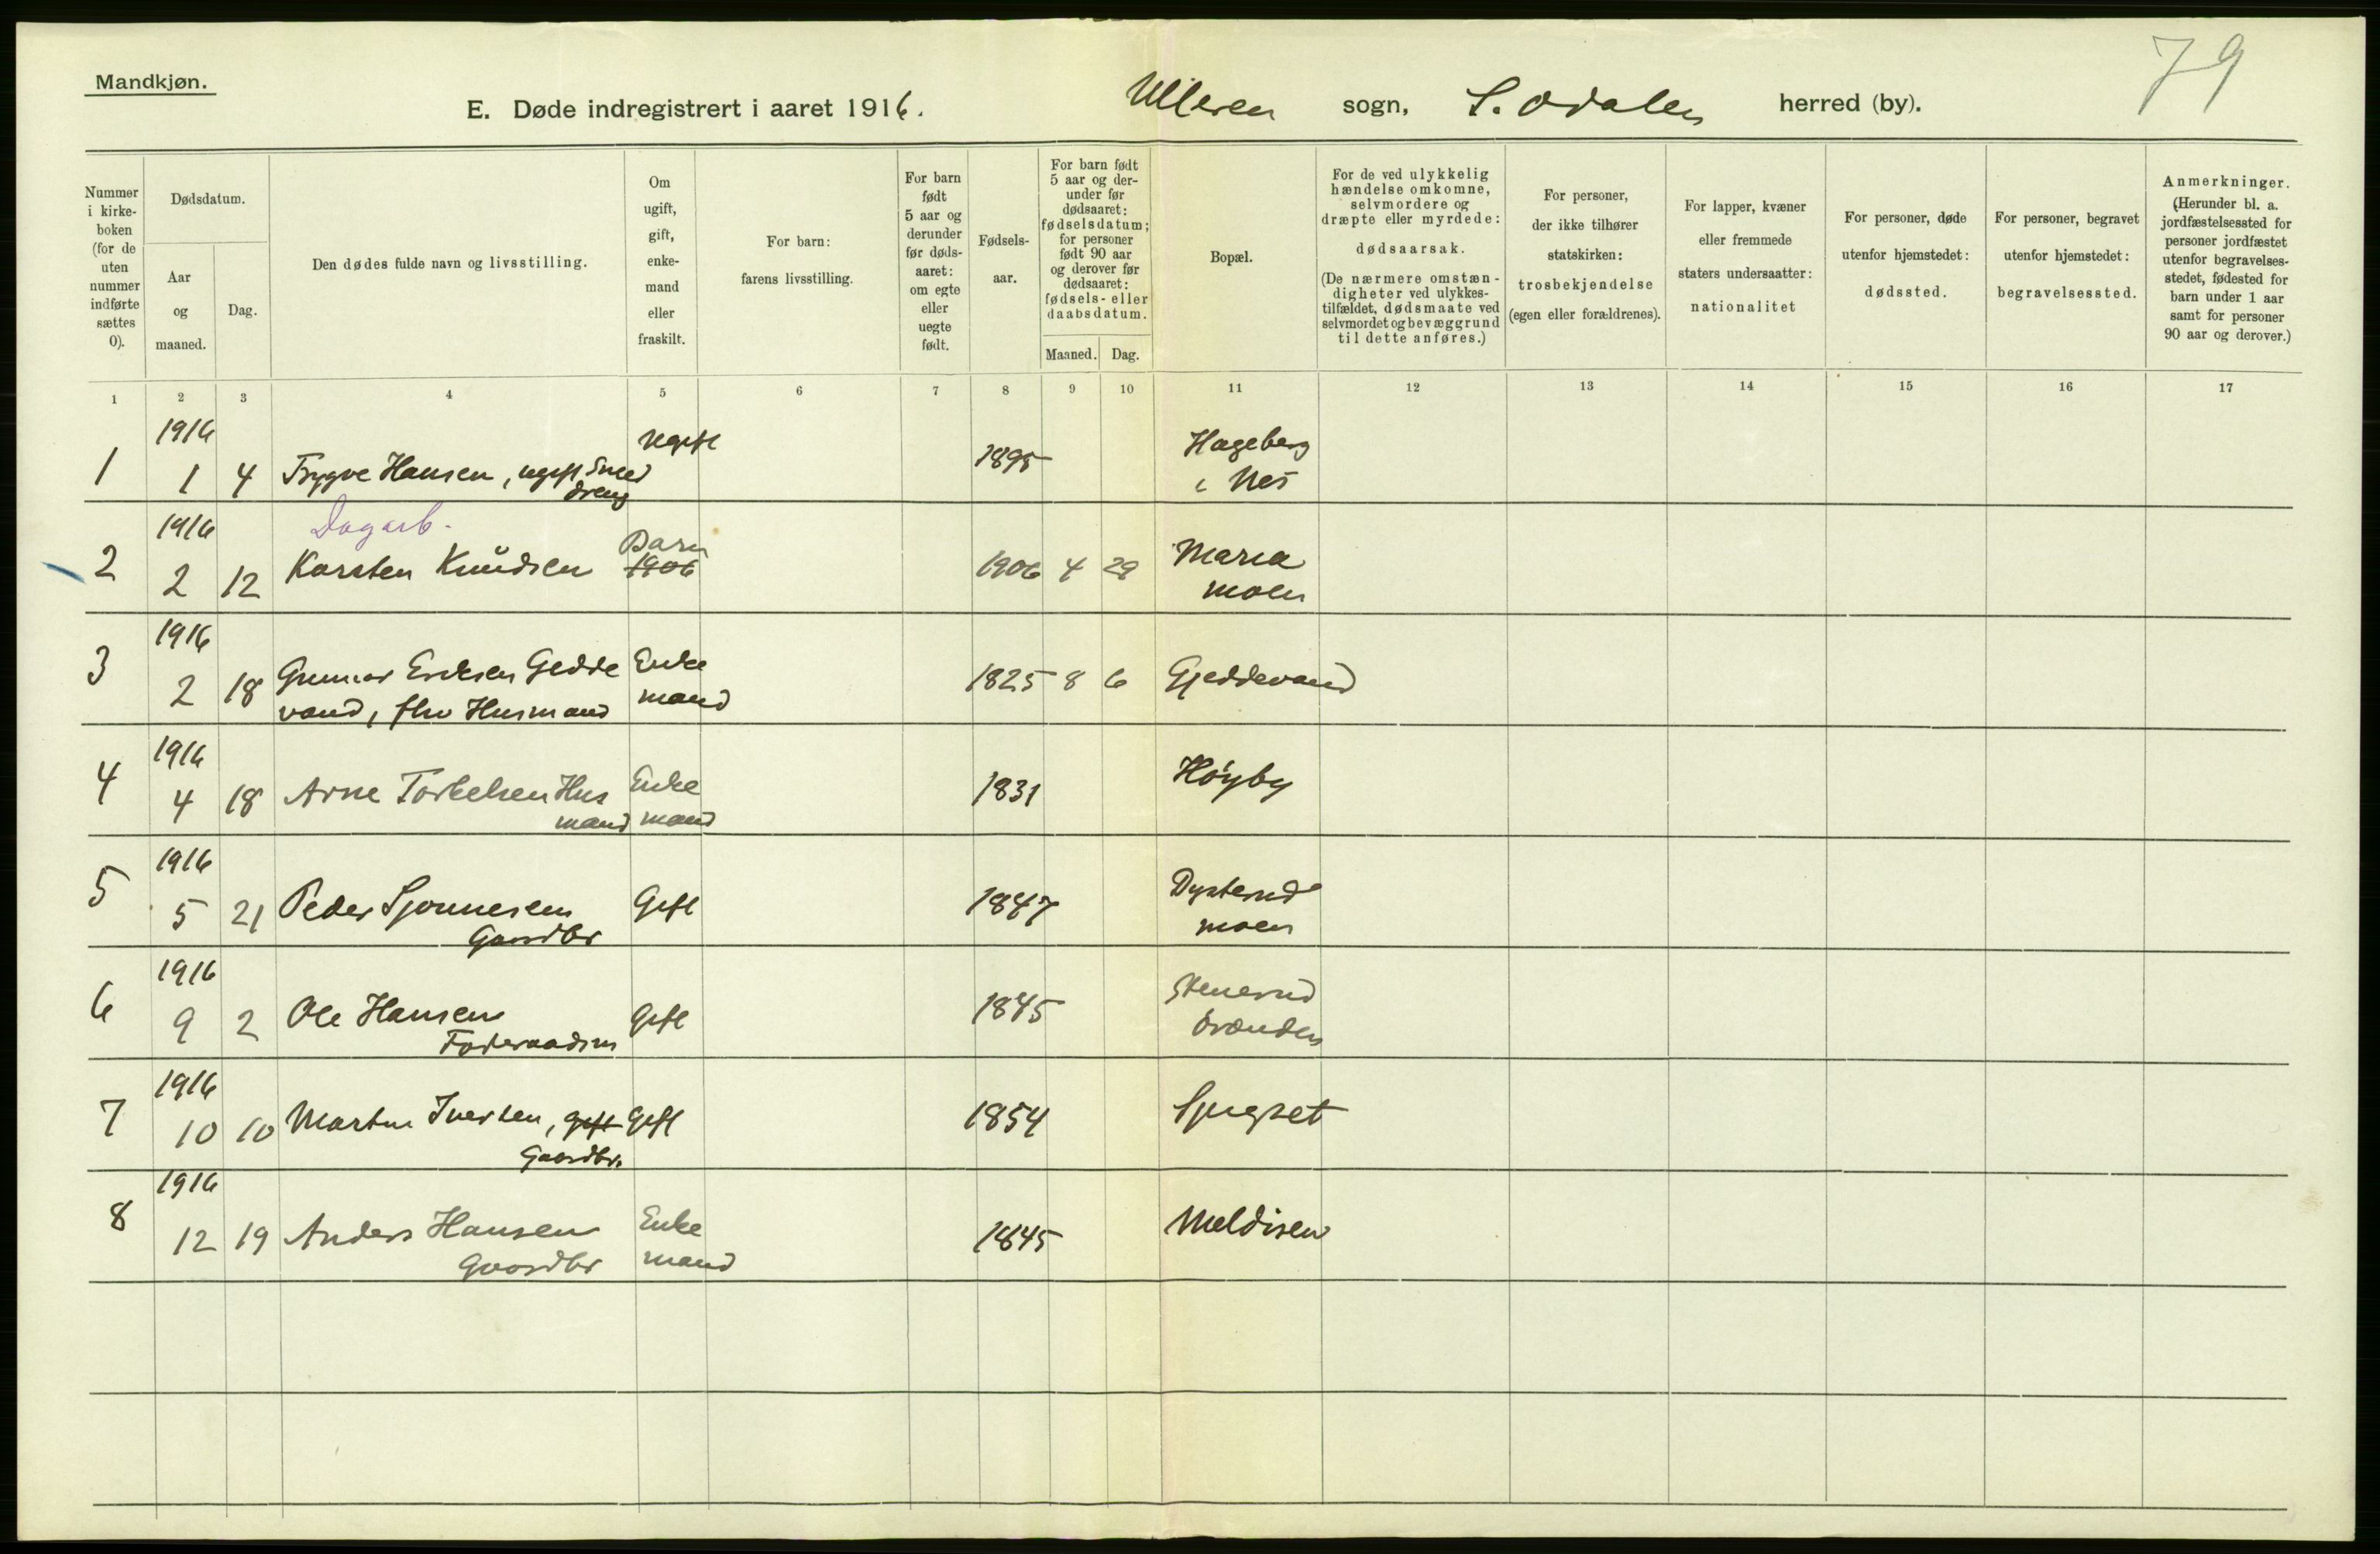 79
Mandkjøn.
E. Døde indregistrert i aaret 1916. Ulleren sogn, S. Odalen herred (by).
Nummer i kirke- boken (for de uten nummer indførte sættes 0).
Dødsdatum.
Aar og maaned.
Dag.
Den dødes fulde navn og livsstilling.
Om ugift, gift, enke- mand eller fraskilt.
For barn: farens livsstilling.
For barn født 5 aar og derunder før døds- aaret: om egte eller uegte født.
Fødsels- aar.
For barn født 5 aar og der- under før dødsaaret: fødselsdatum; for personer født 90 aar og derover før dødsaaret: fødsels- eller daabsdatum.
Maaned.
Dag.
Bopæl.
For de ved ulykkelig hændelse omkomne, selvmordere og dræpte eller myrdede: dødsaarsak. (De nærmere omstæn- digheter ved ulykkes- tilfældet, dødsmaate ved selvmordet og bevæggrund til dette anføres.)
For personer, der ikke tilhører statskirken: trosbekjendelse (egen eller forældrenes).
For lapper, kvæner eller fremmede staters undersaatter: nationalitet
For personer, døde utenfor hjemstedet: dødssted.
For personer, begravet utenfor hjemstedet: begravelsessted.
Anmerkninger. (Herunder bl. a. jordfæstelsessted for personer jordfæstet utenfor begravelses- stedet, fødested for barn under 1 aar samt for personer 90 aar og derover.)
1 2 3 4 5 6 7 8 9 10 11 12 13 14 15 16 17
1916 ugift Hageberg
1 1 4 Trygve Hansen, ugift Smed 1895 i Nes
dreng
1916 Dagarb. Barn Maria
2 2 12 Karsten Knudsen 1906 1906 4 29 moen
1916
3 2 18 Gunnar Eriksen Gedde Enke 1825 8 6 Gjeddevand
vand, fhv Husmand mand
1916 Høyby
4 4 18 Arne Torkelsen Hus Enke 1831
mand mand
1916 Dysterud
5 5 21 Peder Sjønnesen Gift 1847 moen
Gaardbr
1916 Stenerud
6 9 2 Ole Hansen Gift 1845 brænden
Føderaadsm
1916
7 10 10 Martin Iversen, gift Gift 1854 Sjugset
Gaardbr.
1916
8 12 19 Anders Hansen Enke 1845 Meldisen
Gaardbr mand